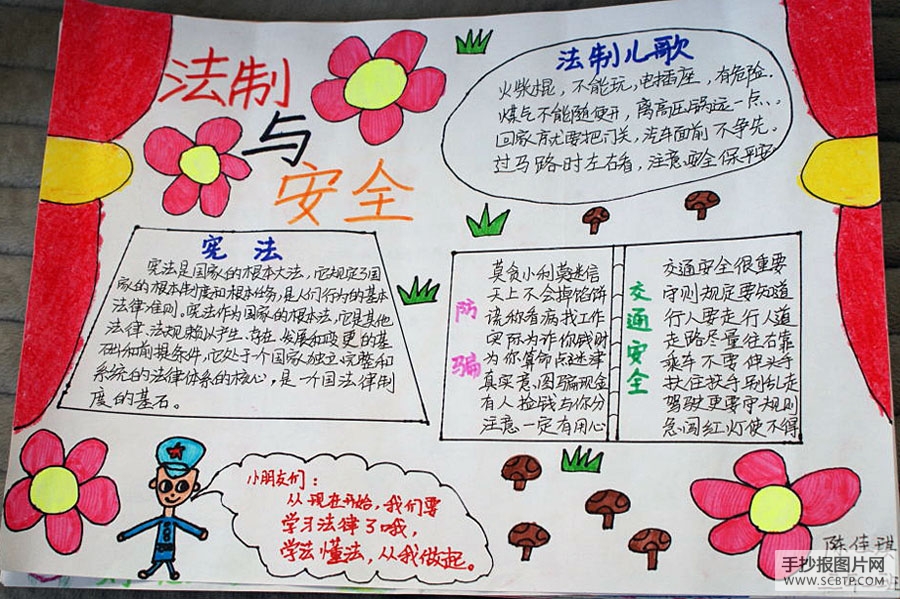 法制
与
安全
法制儿歌
火柴棍，不能玩，电插座，有危险.
煤气不能随便开，离高压锅远一点、.
回家就要把门关，汽车面前不争先.
过马路时左右看，注意安全保平安
宪法
宪法是国家的根本大法，它规定了国
家的根本制度和根本任务，是人们行为的基本
法律准则。宪法作为国家的根本法，它是其他
法律、法规赖以产生、存在、发展和变更的基
础和前提条件，它处于一个国家独立、完整和
系统的法律体系的核心，是一个国法律制
度的基石。
防骗
莫贪小利莫迷信
天上不会掉馅饼
谎你看病找工作
实际为诈你钱财
为你算命点迷津
真实意图骗现金
有人捡钱与你分
注意一定有用心
交通安全
交通安全很重要
守则规定要知道
行人要走行人道
走路尽量往右靠
乘车不要伸头手
扶住扶手别乱走
驾驶更要守规则
急闯红灯使不得
小朋友们：
从现在开始，我们要
学习法律了哦，
学法懂法，从我做起。
陈佳琪
手抄报图片网
WWW.SCBTP.COM